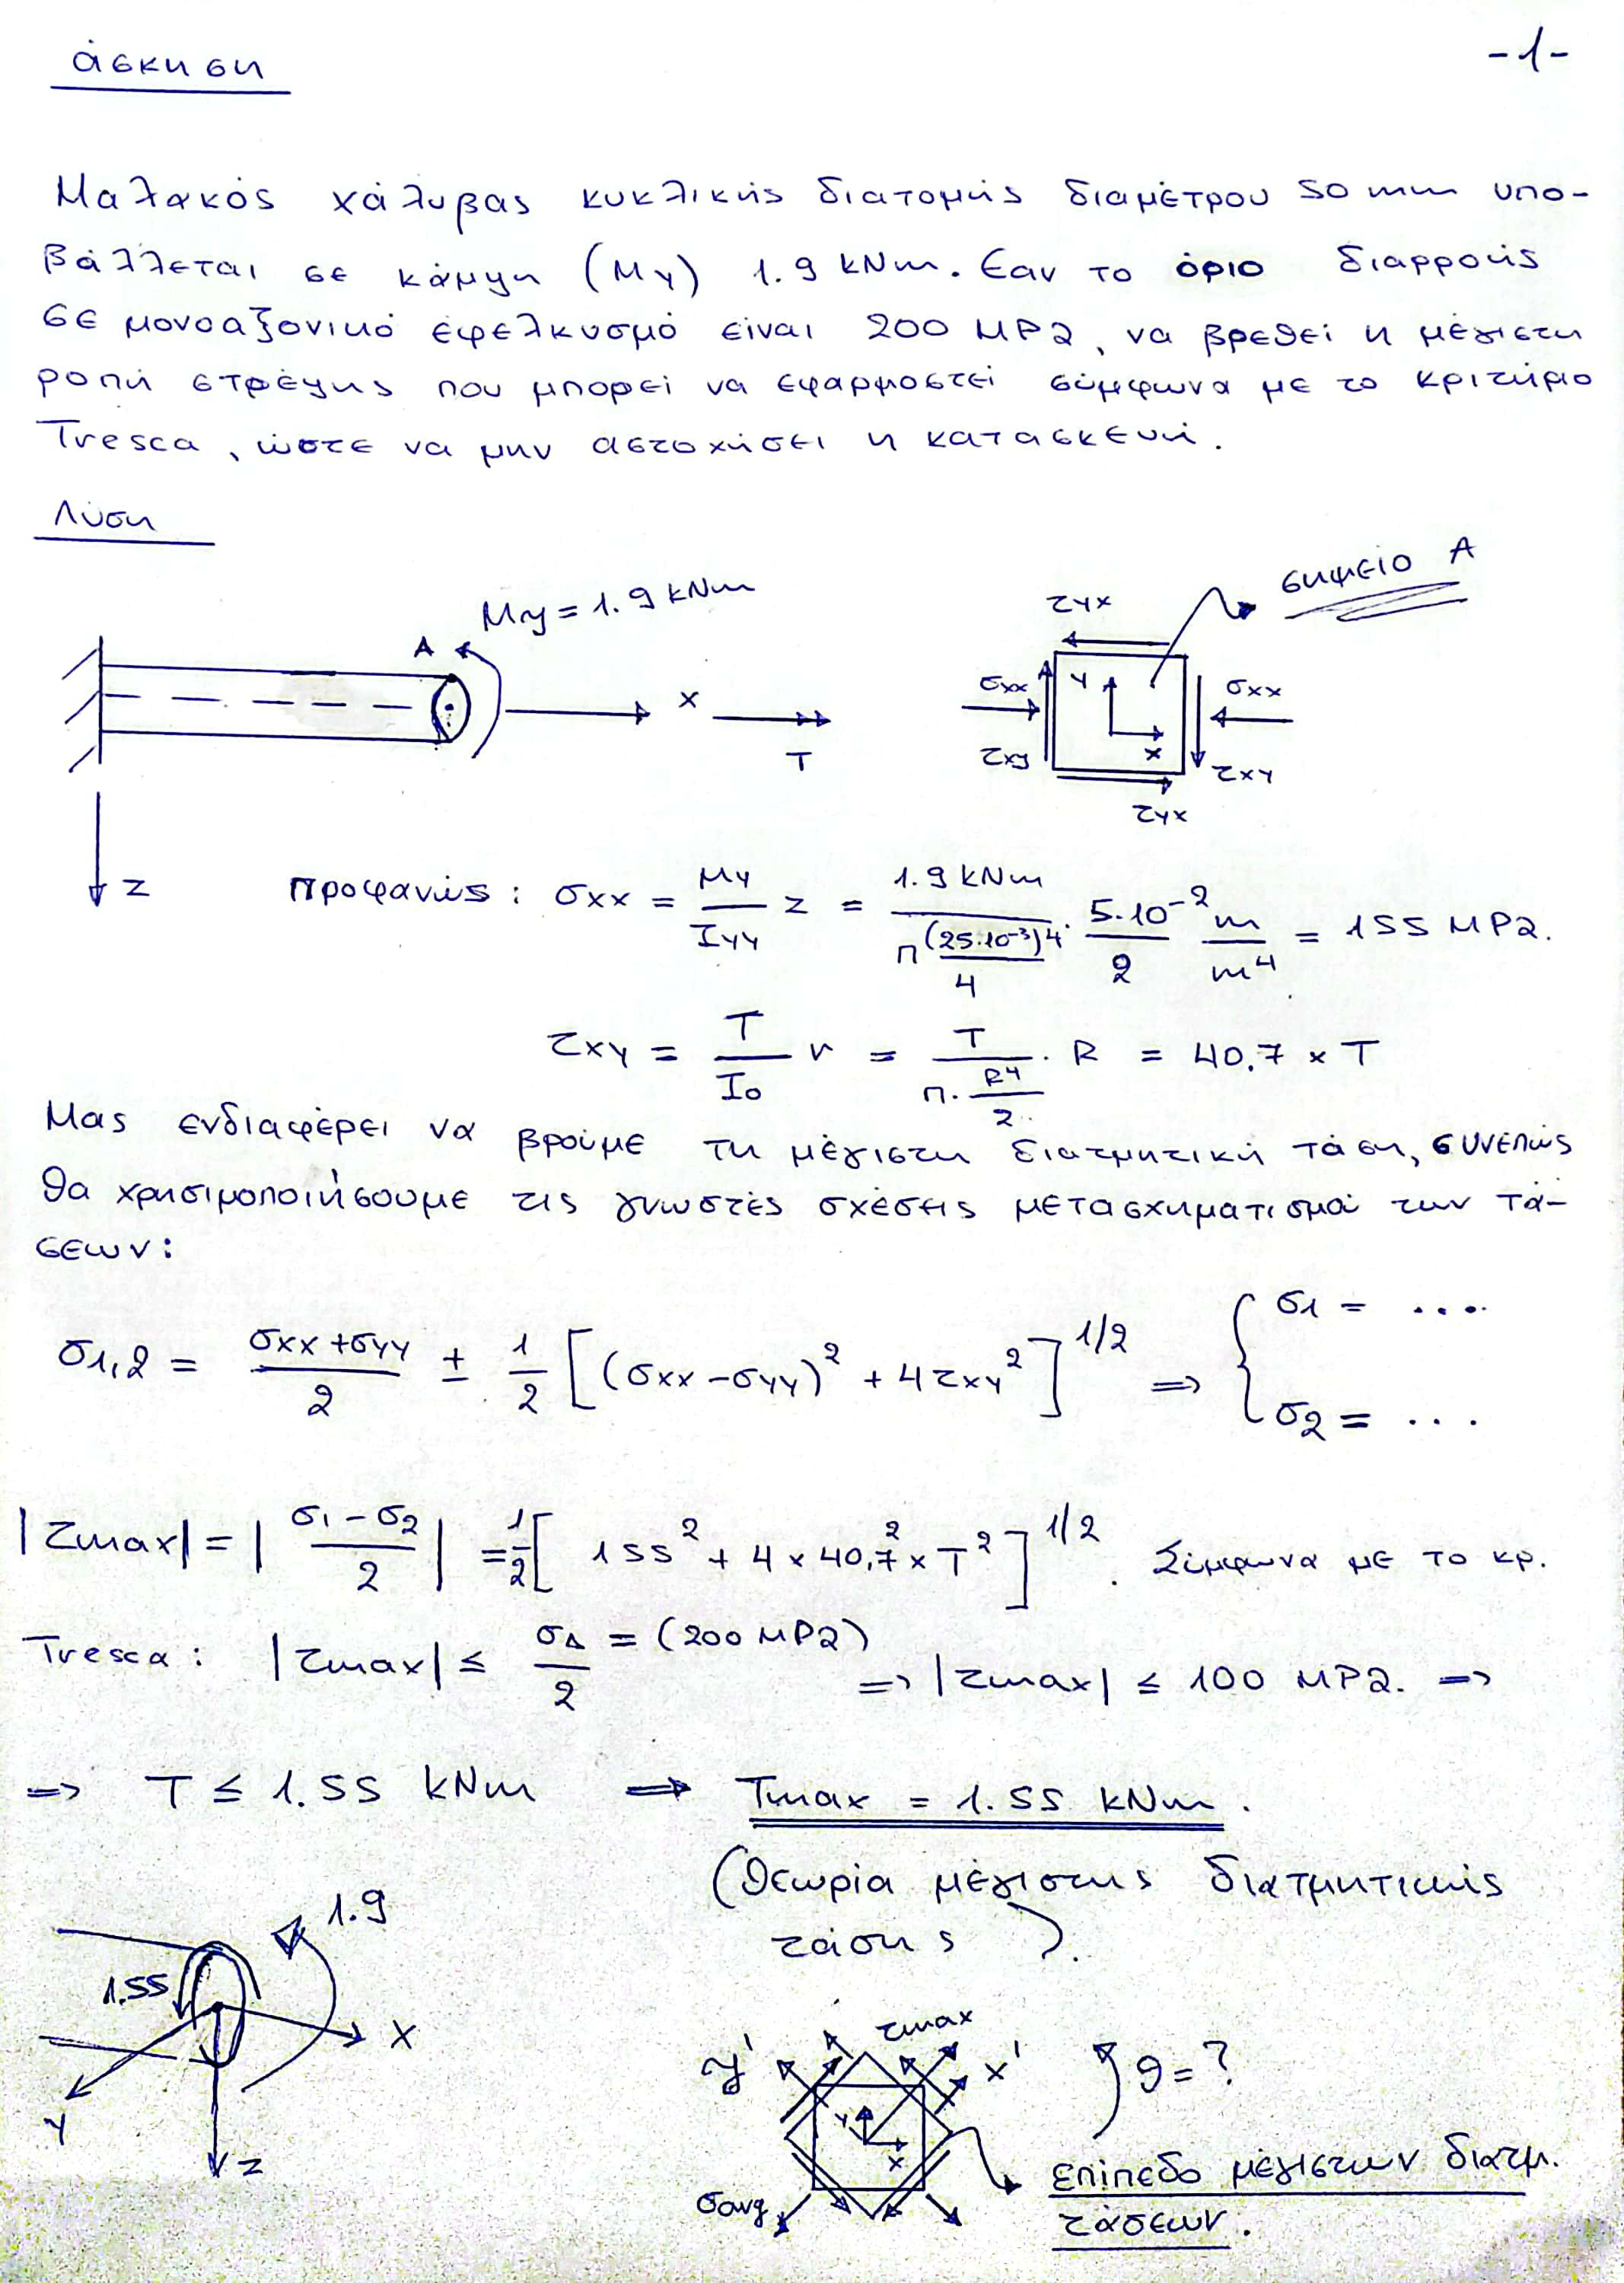 άσκηση
-1-
Μαλακός χάλυβας κυκλικής διατομής διαμέτρου 50 mm υπο-
βάλλεται σε κάμψη (My) 1.9 kNm. Εαν το όριο διαρροής
σε μονοαξονικό εφελκυσμό είναι 200 MPa, να βρεθεί η μέγιστη
ροπή στρέψης που μπορεί να εφαρμοστεί σύμφωνα με το κριτήριο
Tresca, ώστε να μην αστοχήσει η κατασκευή.
Λύση
My = 1.9 kNm
A
x
T
z
σημείο A
τyx
σxx
y
σxx
τxy
x
τxy
τyx
Προφανώς: σxx = My/Iyy z = 1.9 kNm / (π(25·10⁻³)⁴/4) · 5·10⁻²/2 m/m⁴ = 155 MPa.
τxy = T/Io r = T/(π·R⁴/2) · R = 40.7 × T
Μας ενδιαφέρει να βρούμε τη μέγιστη διατμητική τάση, συνεπώς
θα χρησιμοποιήσουμε τις γνωστές σχέσεις μετασχηματισμού των τά-
σεων:
σ1,2 = (σxx + σyy)/2 ± 1/2 [(σxx - σyy)² + 4τxy²]^1/2 => { σ1 = .... σ2 = ...
|τmax| = |(σ1 - σ2)/2| = 1/2 [155² + 4 × 40,7² × T²]^1/2. Σύμφωνα με το κρ.
Tresca: |τmax| ≤ σΔ/2 = (200 MPa) => |τmax| ≤ 100 MPa. =>
=> T ≤ 1.55 kNm => Tmax = 1.55 kNm.
(Θεωρία μέγιστης διατμητικής
τάσης).
1.9
1.55
x
y
z
τmax
y'
x'
θ = ?
y
x
σavg
επίπεδο μέγιστων διατμ.
τάσεων.